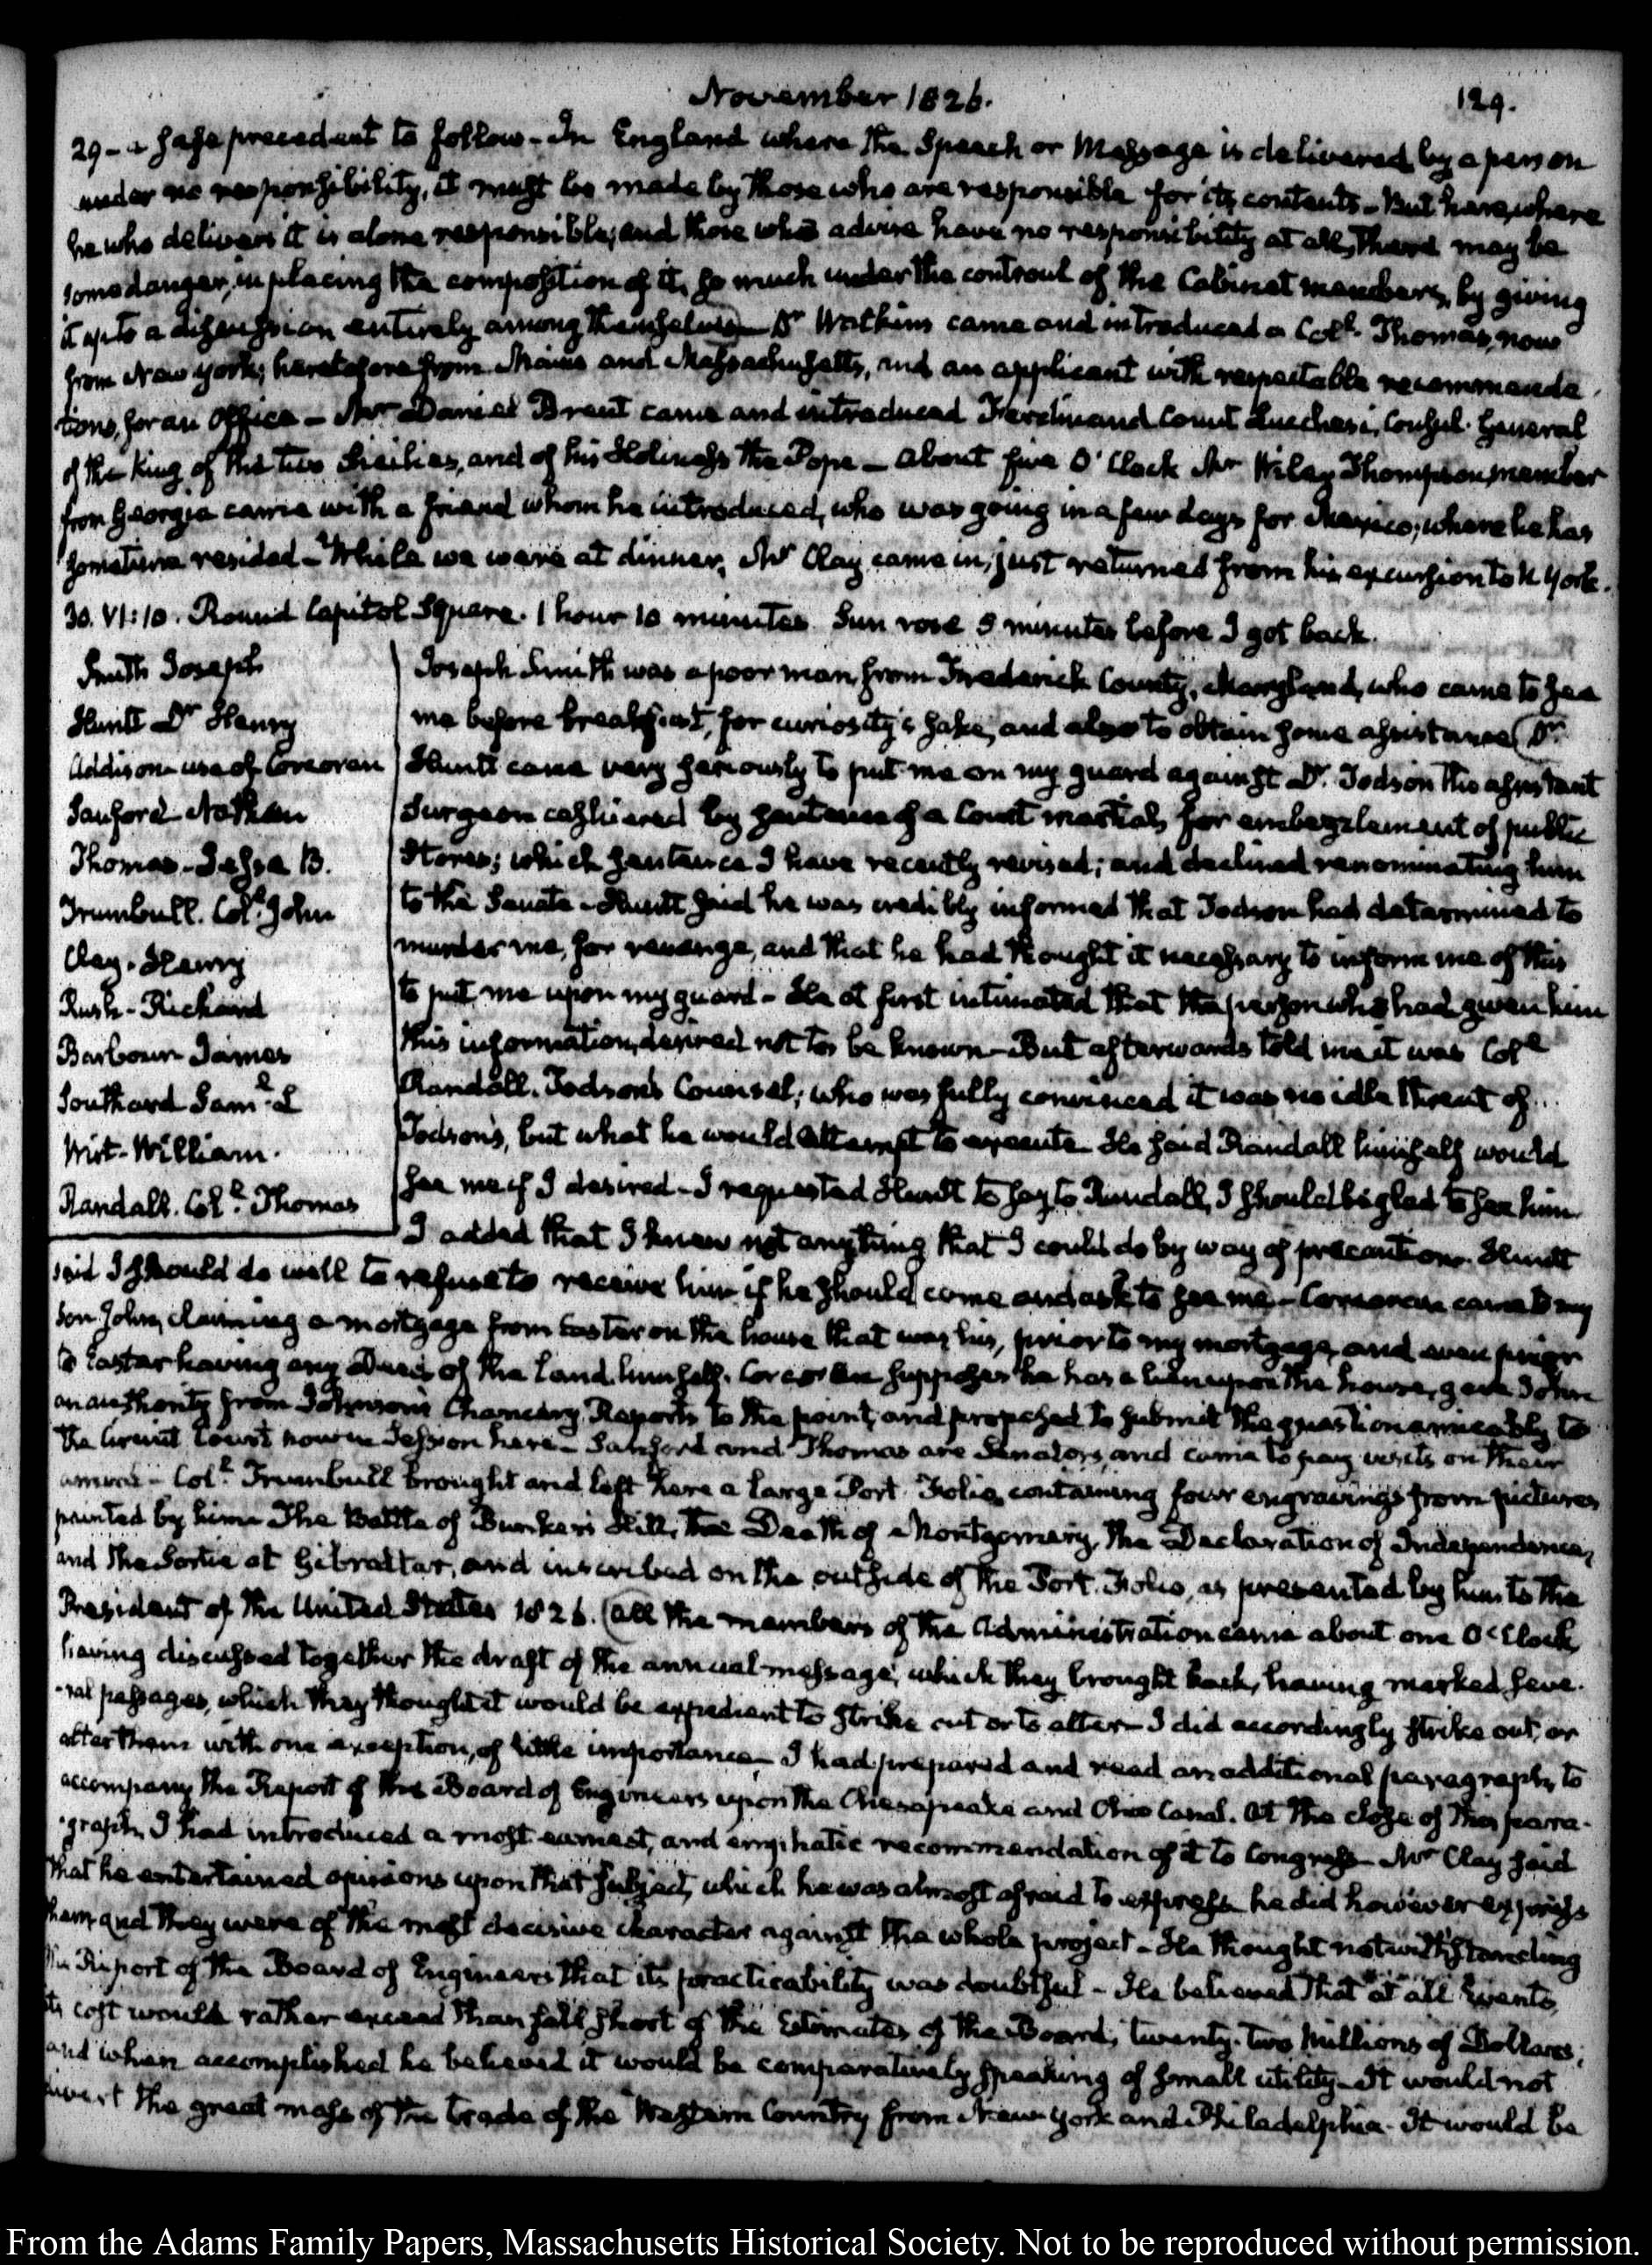 November 1826.
129.
29 - a safe precedent to follow - In England where the Speech or Message is delivered by a person
under no responsibility, it must be made by those who are responsible for its contents - But here, where
he who delivers it is alone responsible, and those who advise have no responsibility at all, there may be
some danger, in placing the composition of it, so much under the controul of the Cabinet members, by giving
it up to a discussion entirely among themselves - Dr Watkins came and introduced a Coll. Thomas, now
from New York; heretofore from Maine and Massachusetts, and an applicant with respectable recommenda-
tions, for an Office - Mr Daniel Brent came and introduced Ferdinand Count Lucchesi, Consul-General
of the King of the two Sicilies, and of his Holiness the Pope - About five O'Clock Mr Wiley Thompson, member
from Georgia came with a friend whom he introduced, who was going in a few days for Mexico; where he has
sometime resided - While we were at dinner, Mr Clay came in, just returned from his excursion to N York.
30. VI:10. Round Capitol Square. 1 hour 10 minutes. Sun rose 5 minutes before I got back.
Smith Joseph
Huntt Dr Henry
Addison use of Corcoran
Sanford Nathan
Thomas - Jesse B.
Trumbull. Coll. John
Clay - Henry
Rush - Richard
Barbour James
Southard Saml. L
Wirt - William.
Randall. Coll. Thomas
Joseph Smith was a poor man from Frederick County, Maryland, who came to see
me before breakfast, for curiosity's sake, and also to obtain some assistance (Dr.
Huntt came very seriously to put me on my guard against Dr. Todson the assistant
Surgeon cashiered by sentence of a Court martial, for embezzlement of public
Stores; which sentence I have recently revised; and declined renominating him
to the Senate - Huntt said he was credibly informed that Todson had determined to
murder me, for revenge, and that he had thought it necessary to inform me of this
to put me upon my guard - He at first intimated that the person who had given him
this information, desired not to be known - But afterwards told me it was Coll
Randall, Todson's Counsel; who was fully convinced it was no idle threat of
Todson's, but what he would attempt to execute. He said Randall himself would
see me if I desired - I requested Huntt to say to Randall, I should be glad to see him.
I added that I knew not anything that I could do by way of precaution. Huntt
said I should do well to refuse to receive him if he should come and ask to see me - Corcoran came to my
Son John, claiming a mortgage from Easter on the house that was his, prior to my mortgage, and even prior
to Easter having any Deed of the Land himself. Corcoran supposes he has a lien upon the house, gave John
an authority from Johnson's Chancery Reports to the point, and proposed to submit the question amicably to
the Circuit Court now in Session here - Sanford and Thomas are Senators, and came to pay visits on their
arrival - Coll. Trumbull brought and left here a large Port-Folio, containing four engravings from pictures
painted by him The Battle of Bunker's Hill, the Death of Montgomery, the Declaration of Independence,
and the Sortie at Gibraltar, and inscribed on the outside of the Port-Folio, as presented by him to the
President of the United States 1826. (All the members of the Administration came about one O'Clock,
having discussed together the draft of the annual message, which they brought back, having marked seve-
-ral passages, which they thought it would be expedient to strike out or to alter - I did accordingly strike out, or
alter them with one exception, of little importance - I had prepared and read an additional paragraph, to
accompany the Report of the Board of Engineers upon the Chesapeake and Ohio Canal. At the close of this para-
-graph, I had introduced a most earnest, and emphatic recommendation of it to Congress - Mr Clay said
that he entertained opinions upon that subject, which he was almost afraid to express - he did however express
them, and they were of the most decisive character against the whole project - He thought notwithstanding
the Report of the Board of Engineers that its practicability was doubtful - He believed that at all events,
its cost would rather exceed than fall short of the Estimates of the Board; twenty-two Millions of Dollars;
and when accomplished he believed it would be comparatively speaking of small utility - It would not
divert the great mass of the trade of the Western Country from New-York and Philadelphia. It would be
From the Adams Family Papers, Massachusetts Historical Society. Not to be reproduced without permission.